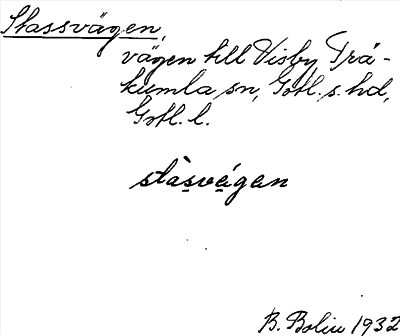 Stassvägen,
vägen till Visby Trä-
kumla sn, Gotl. s. hd,
Gotl. l.
stàsvägan
B. Bolin 1932